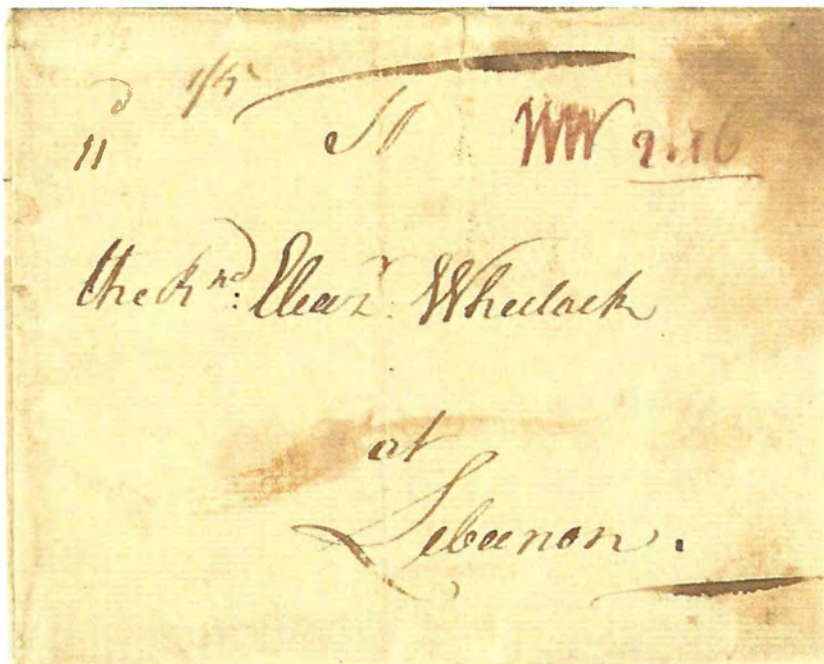 1/5
11 d To NW 2.16
the Rnd: Eleazr. Wheelock
at
Lebanon.